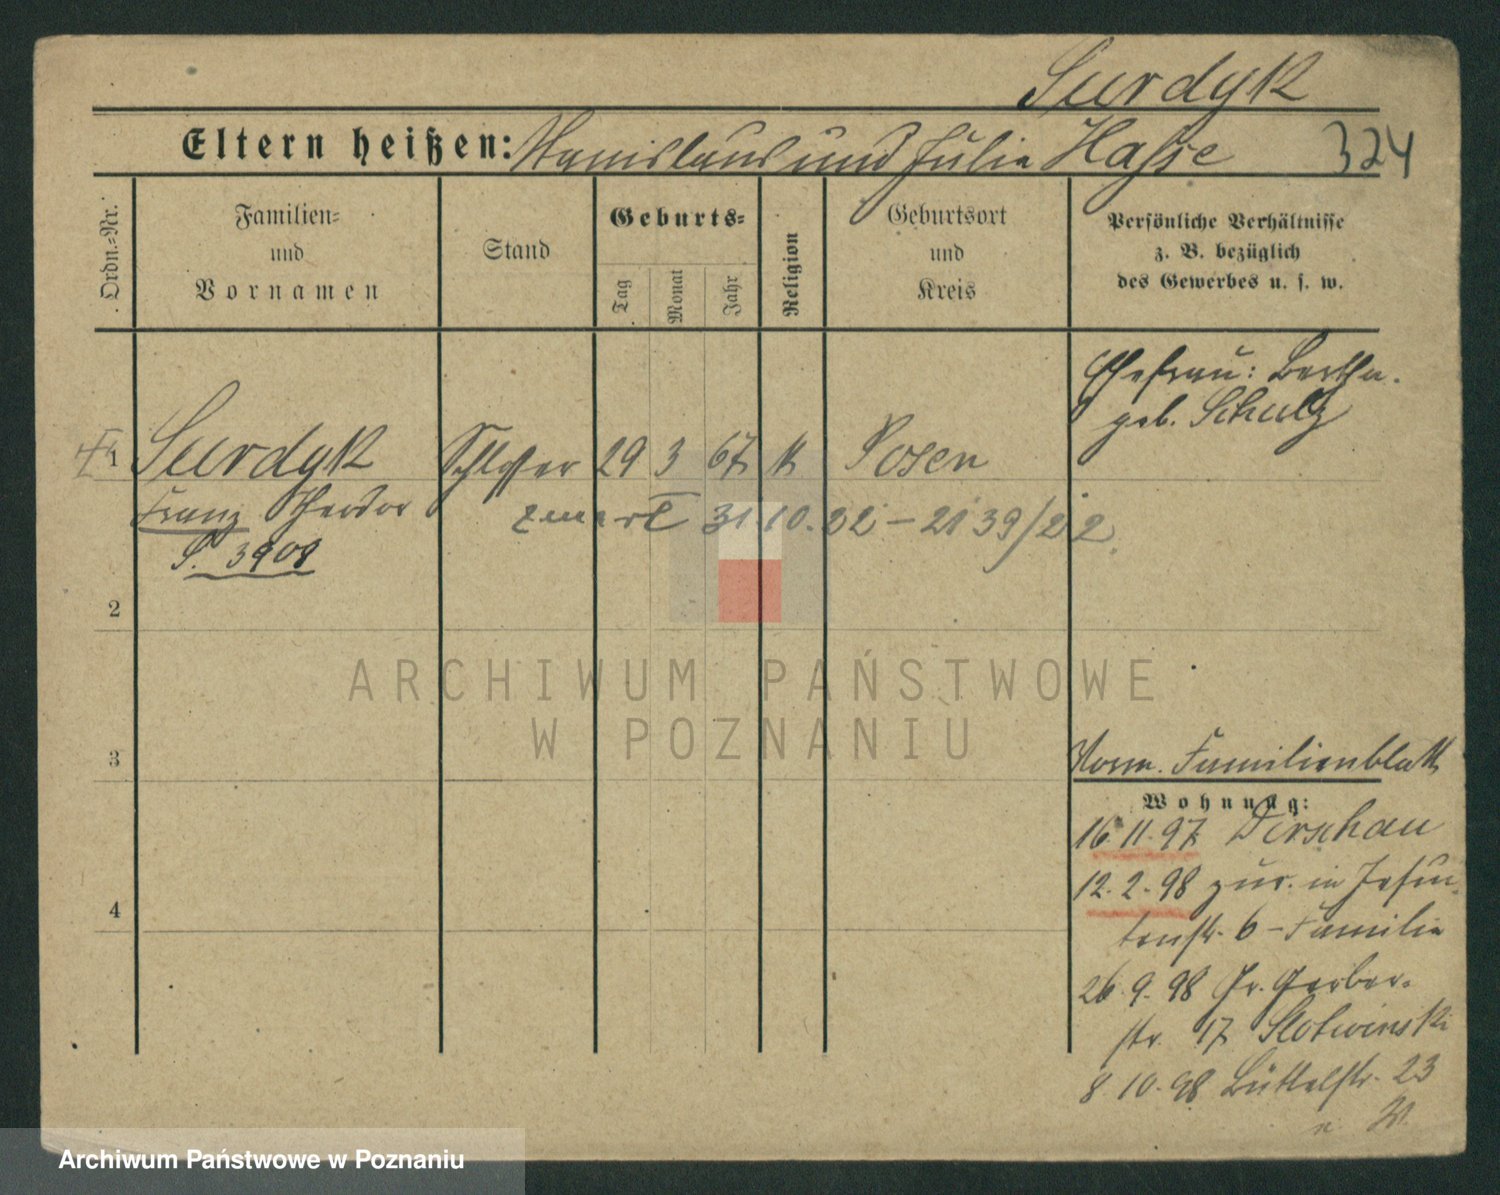 Surdyk
Eltern heißen: Stanislaus und Julie Hasse 324
Ordn.-Nr.
Familien-
und
Vornamen
Stand
Geburts-
Tag
Monat
Jahr
Religion
Geburtsort
und
Kreis
Persönliche Verhältnisse
z. B. bezüglich
des Gewerbes u. s. w.
Ehefrau: Bertha
geb. Schulz
1 Surdyk Schlosser 29 3 67 k Posen
Franz Theodor zmarł 31.10.22 - 2139/22.
S. 3908
2
ARCHIWUM PAŃSTWOWE
W POZNANIU
3
Norm. Familienblatt
Wohnung:
16.11.97 Dirschau
12.2.98 zur. in Jesui-
tenstr. 6 - Familie
4
26.9.98 Gr. Gerber-
str. 17 Slotwinski
8.10.98 Büttelstr. 23
n. W.
Archiwum Państwowe w Poznaniu